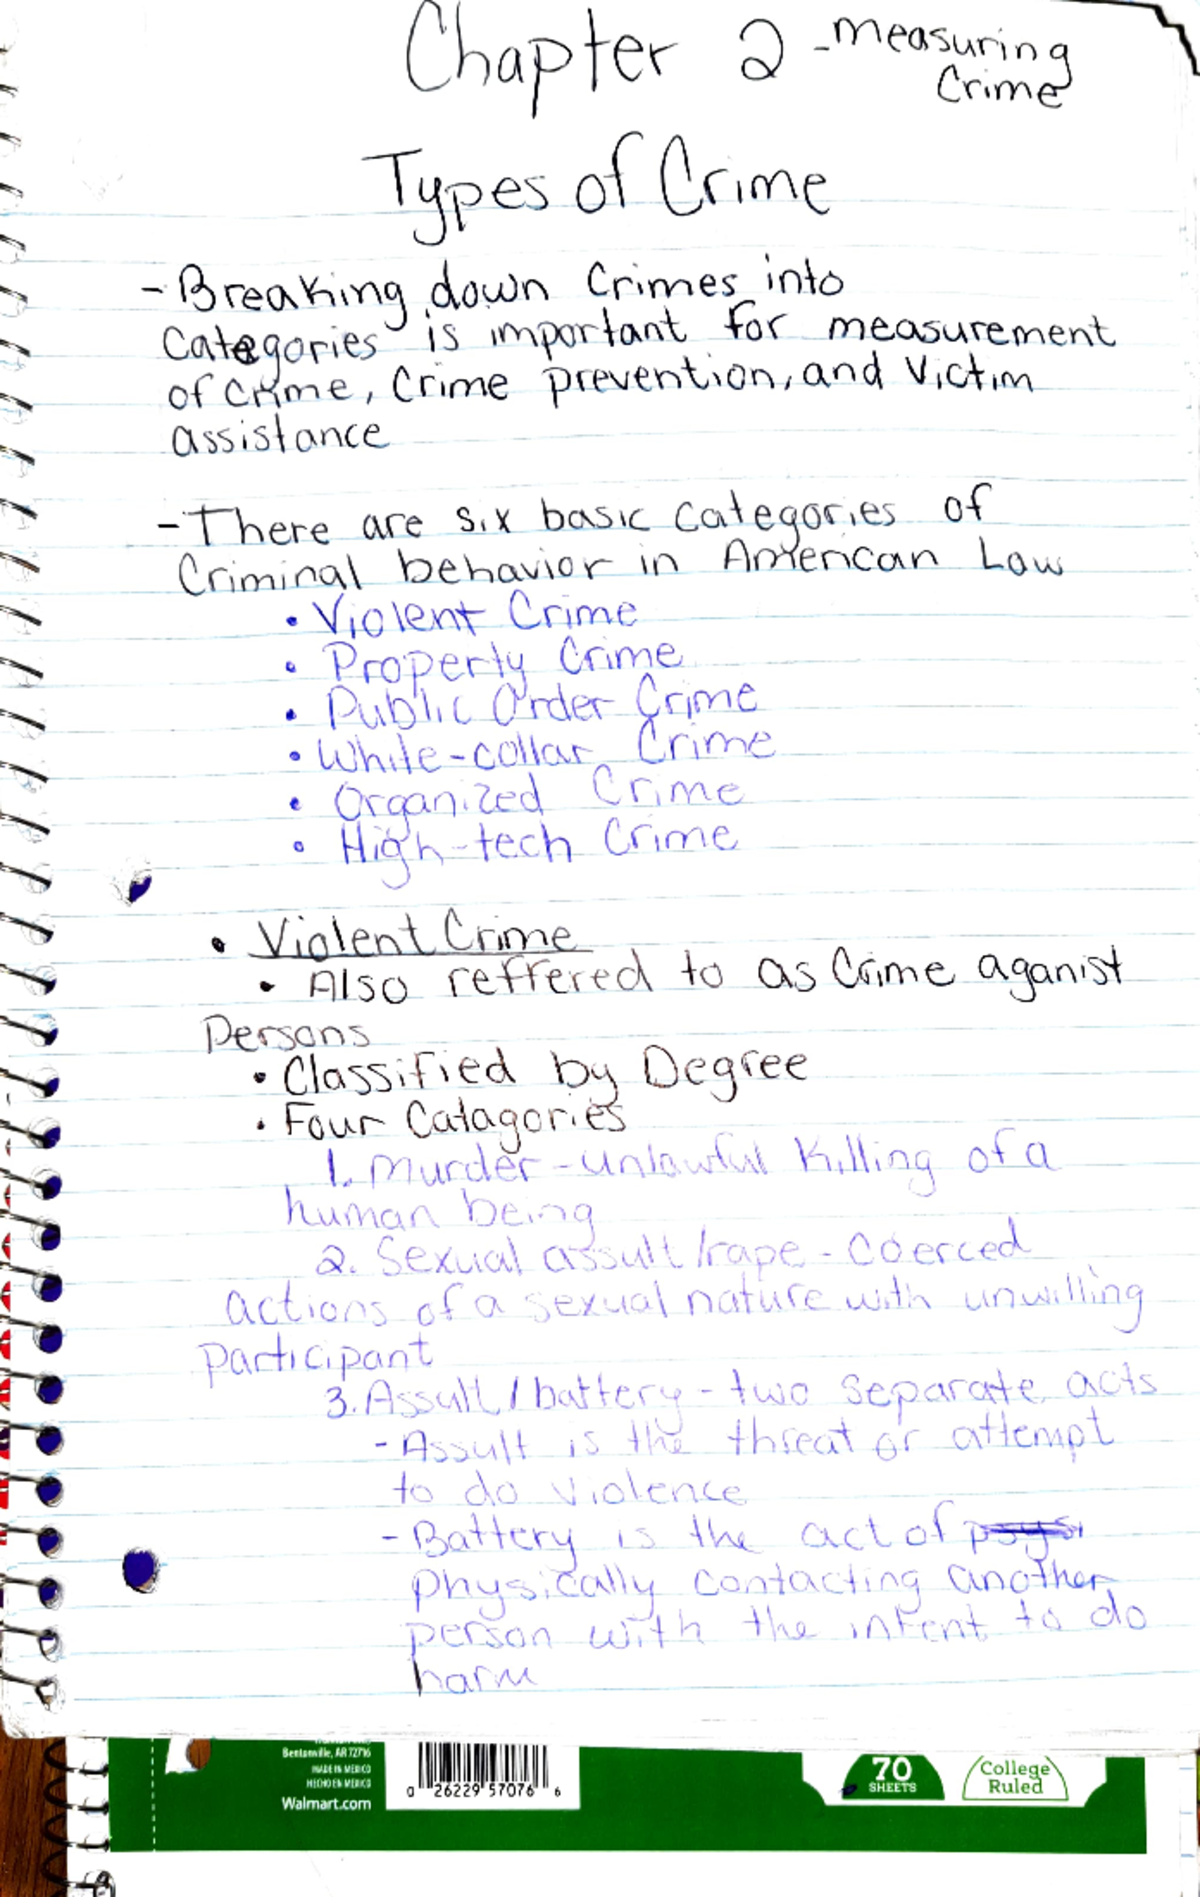 Chapter 2 - measuring
Crime
Types of Crime
- Breaking down Crimes into
Categories is important for measurement
of Crime, Crime prevention, and Victim
assistance
- There are six basic Categories of
Criminal behavior in American Law
• Violent Crime
• Property Crime
• Public Order Crime
• White-collar Crime
• Organized Crime
• High-tech Crime
• Violent Crime
• Also reffered to as Crime aganist
Persons
• Classified by Degree
• Four Catagories
1. Murder - unlawful Killing of a
human being
2. Sexual assult/rape - Coerced
actions of a sexual nature with unwilling
participant
3. Assult/battery - two separate acts
- Assult is the threat or attempt
to do violence
- Battery is the act of
physically contacting another
person with the intent to do
harm
Bentonville, AR 72716
MADE IN MEXICO
HECHO EN MÉXICO
Walmart.com
0 26229 57076 6
70
SHEETS
College
Ruled